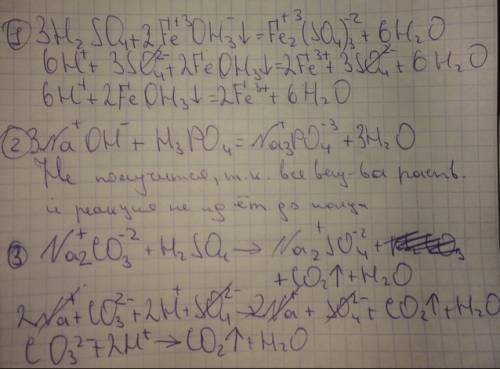 ① 3H₂SO₄+2Fe⁺³OH₃⁻↓=Fe₂⁺³(SO₄)₃⁻²+6H₂O
6H⁺+3SO₄²⁻+2FeOH₃↓=2Fe³⁺+3SO₄²⁻+6H₂O
6H⁺+2FeOH₃↓=2Fe³⁺+6H₂O
② 3Na⁺OH⁻+H₃PO₄=Na₃⁺PO₄⁻³+3H₂O
Не получится, т.к. все вещ-ва раств.
и реакция не идёт до конца
③ Na₂⁺CO₃⁻²+H₂SO₄→Na₂⁺SO₄⁻²+
+CO₂↑+H₂O
2Na⁺+CO₃²⁻+2H⁺+SO₄²⁻→2Na⁺+SO₄²⁻+CO₂↑+H₂O
CO₃²⁻+2H⁺→CO₂↑+H₂O